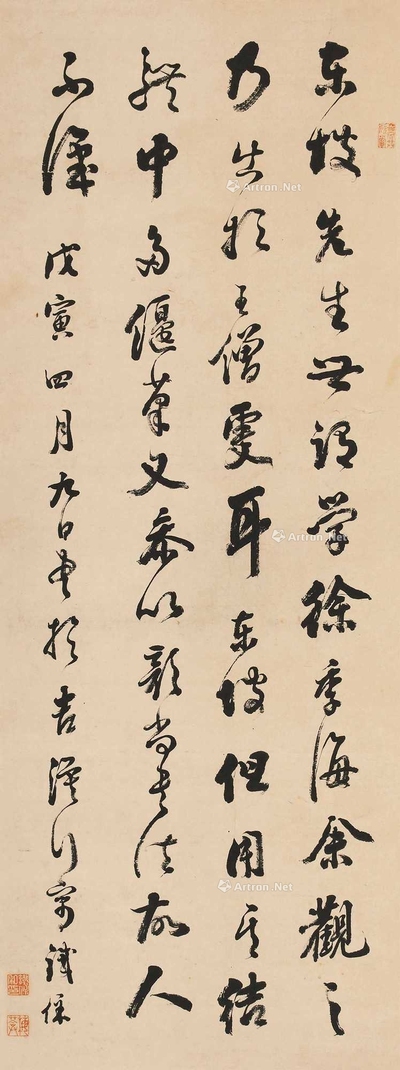 东坡先生世谓学徐季海余观之
乃出于王僧虔耳东坡但用其结
体中多偃笔又参以颜尚书法故人
不识
戊寅四月九日书于吉溪行寄 铁保
Artron.Net
Artron.Net
Artron.Net